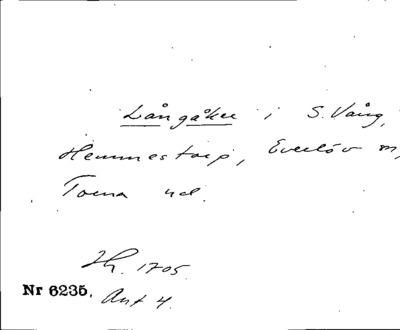 Långåker i S. Vång,
Hemmestorp, Everlöv m,
Torna hd.
Jh. 1705
Nr 6235. Ant 4.